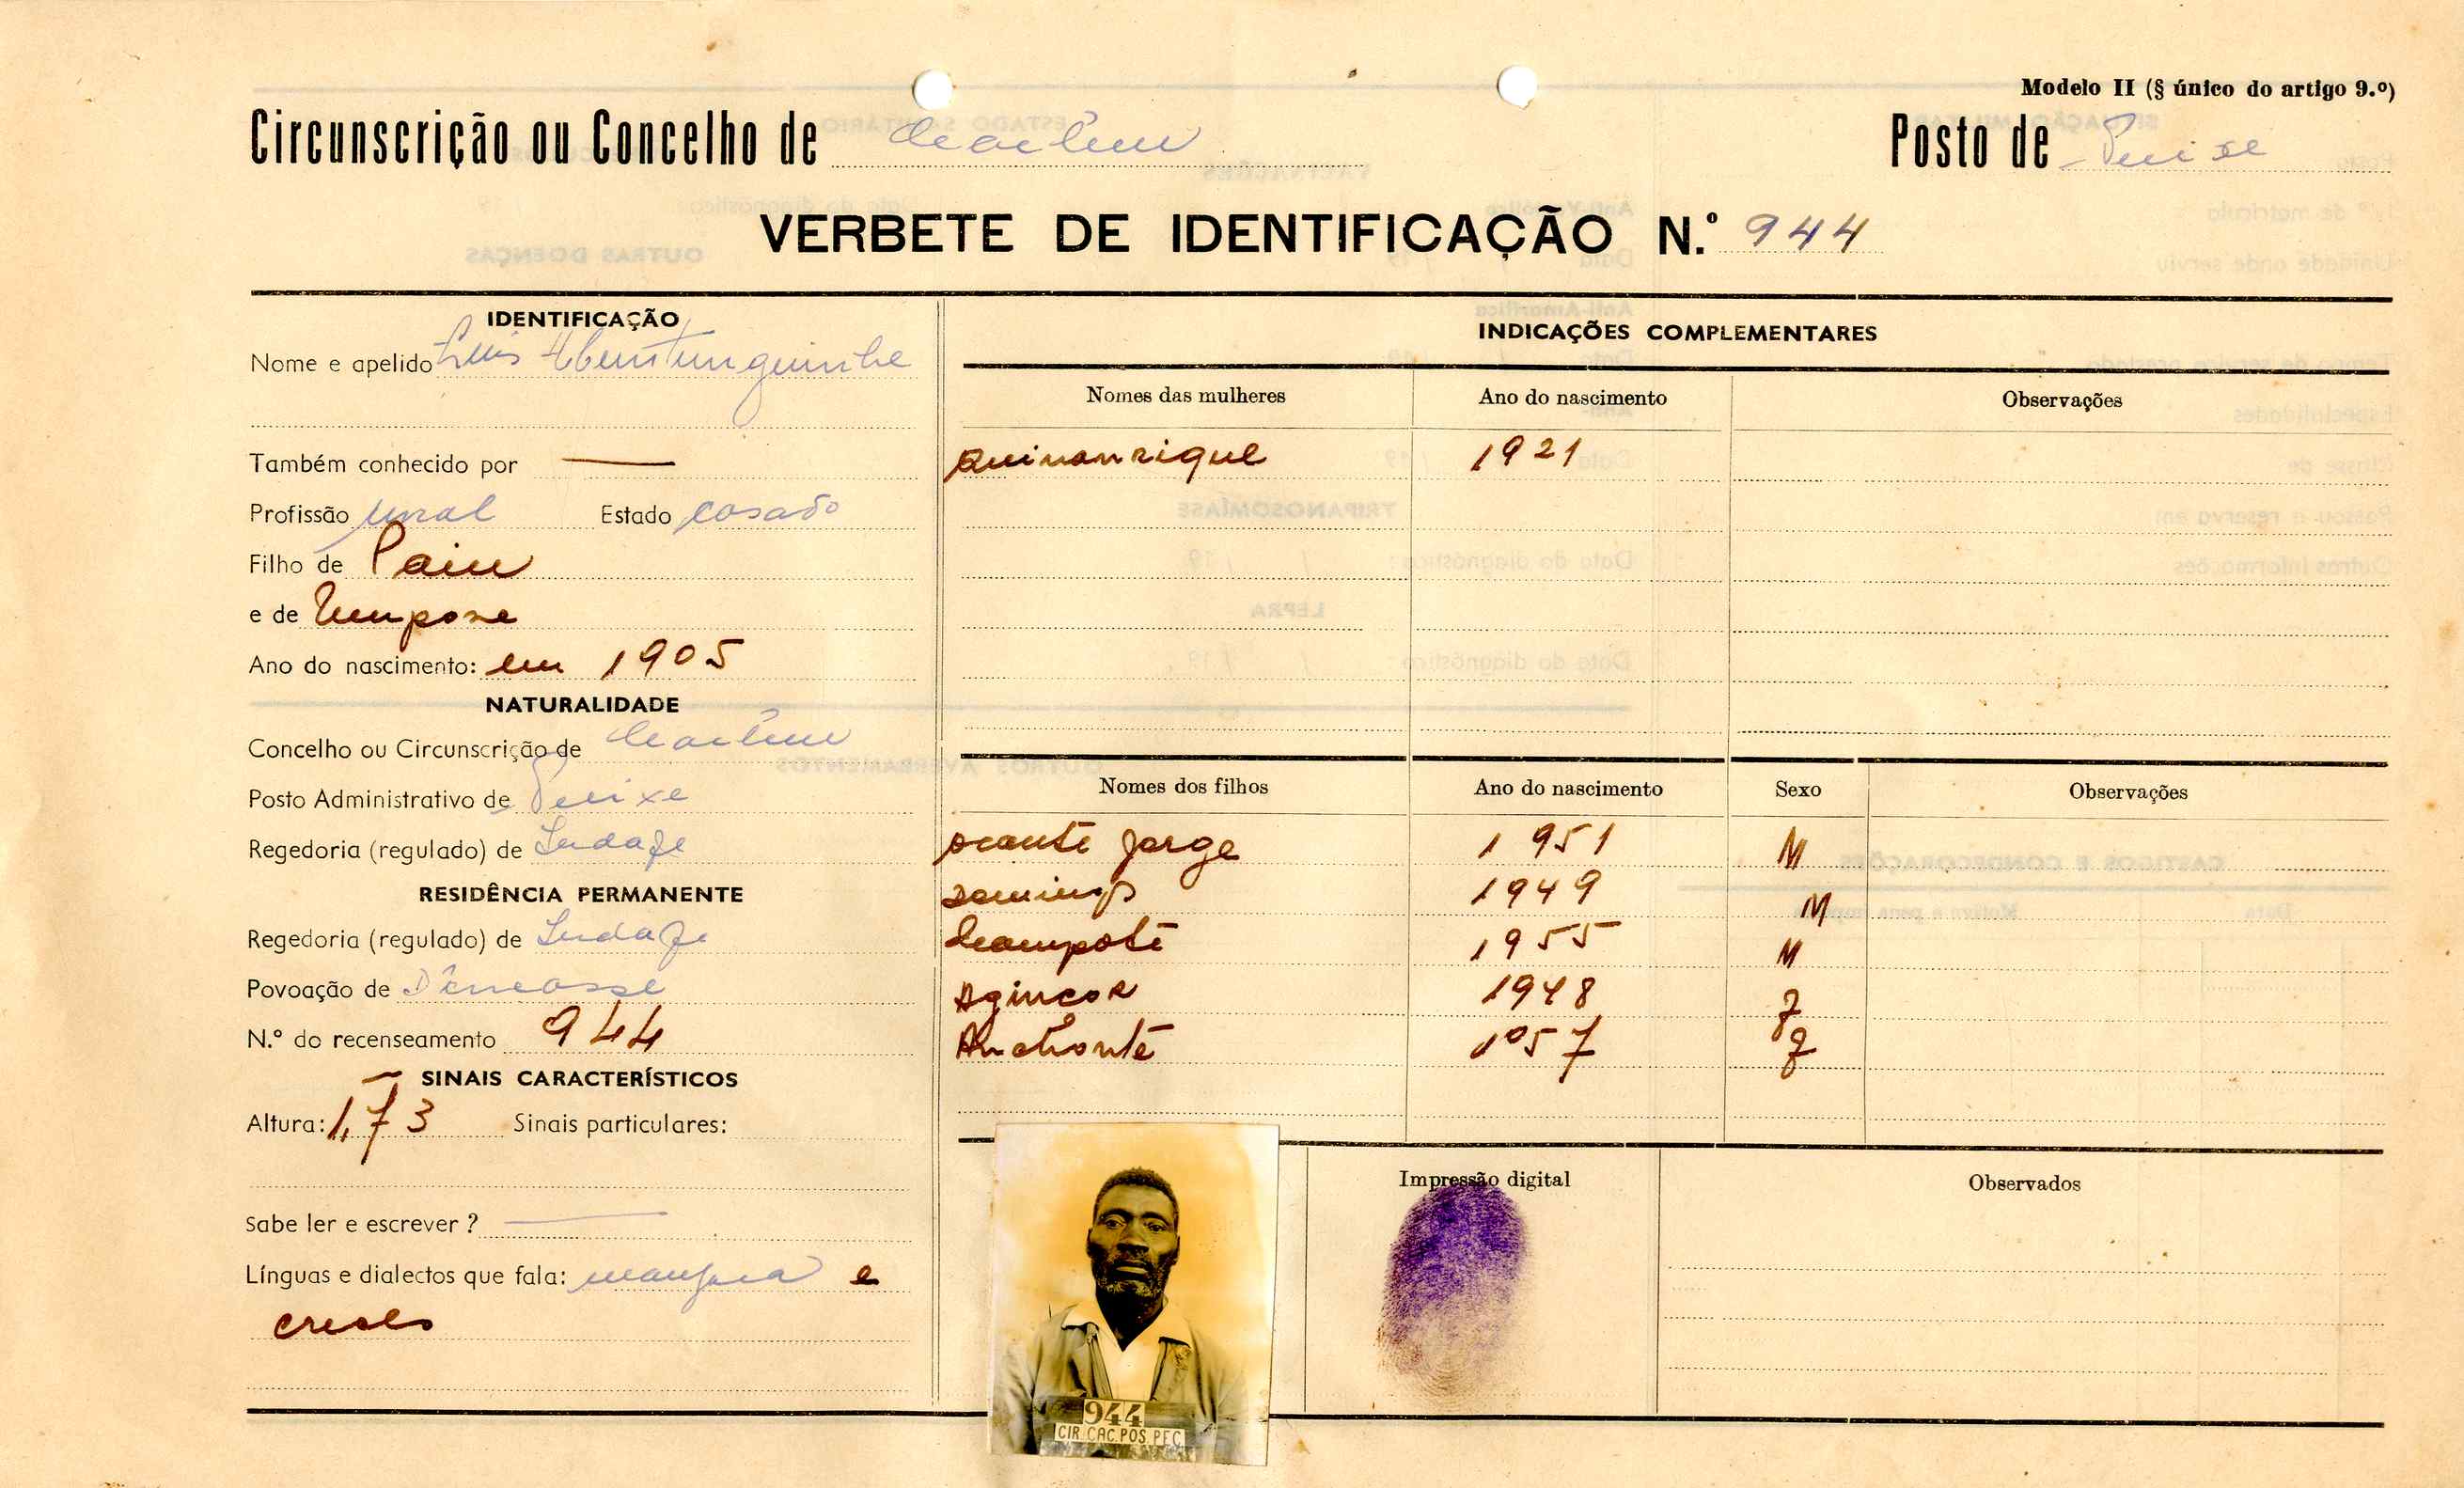 Modelo II (§ único do artigo 9.º)
Circunscrição ou Concelho de Cacheu
Posto de Pecixe
VERBETE DE IDENTIFICAÇÃO N.º 944
IDENTIFICAÇÃO
Nome e apelido Luis
Também conhecido por —
Profissão rural Estado casado
Filho de
e de
Ano do nascimento: em 1905
NATURALIDADE
Concelho ou Circunscrição de Cacheu
Posto Administrativo de Pecixe
Regedoria (regulado) de
RESIDÊNCIA PERMANENTE
Regedoria (regulado) de
Povoação de
N.º do recenseamento 944
SINAIS CARACTERÍSTICOS
Altura: 1,73 Sinais particulares:
Sabe ler e escrever ? —
Línguas e dialectos que fala: manjaca e
creolo
INDICAÇÕES COMPLEMENTARES
Nomes das mulheres Ano do nascimento Observações
1921
Nomes dos filhos Ano do nascimento Sexo Observações
Jorge 1951 M
Domingos 1949 M
Campoté 1955 M
1948 F
1957 F
Impressão digital
Observados
944
CIR.CAC.POS.PEC